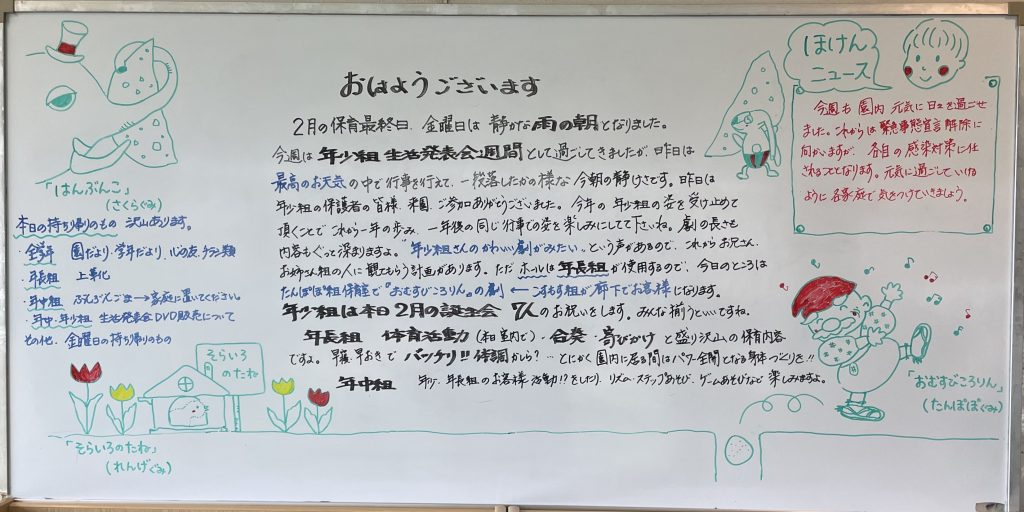 おはようございます
2月の保育最終日、金曜日は静かな雨の朝となりました。
今週は年少組生活発表会週間として過ごしてきましたが、昨日は
最高のお天気の中で行事を行えて、一段落したかの様な今朝の静けさです。昨日は
年少組の保護者の皆様、来園、ご参加ありがとうございました。今年の年少組の姿を受け止めて
頂くことでこれから一年の歩み、一年後の同じ行事での姿を楽しみにしてて下さいね。劇の長さも
内容もぐっと深まりますよ。"年少組さんのかわいい劇がみたい"という声があるので、これからお兄さん、
お姉さん組の人に観てもらう計画があります。ただホールは年長組が使用するので、今日のところは
たんぽぽ組保育室で"おむすびころりん"の劇 ← こすもす組が廊下でお客様になります。
年少組は本日2月の誕生会 7人のお祝いをします。みんな揃うといいですね。
年長組 体育活動(和室内で)・合奏・寄びかけと盛り沢山の保育内容
ですよ。早寝・早おきでバッチリ!!体調かしら?…とにかく園内に居る間はパワー全開となる身体つくりを!!
年中組 年少・年長組のお客様活動!?をしたり、リズム・ステップあそび、ゲームあそびなど楽しみますよ。
「はんぶんこ」
(さくらぐみ)
本日の持ち帰りのもの 沢山あります。
・全学年 園だより・学年だより、心の友、チラシ類
・年長組 上華化
・年中組 ぶんぶんごま→家庭に置いてください。
・年中・年少組 生活発表会DVD販売について
その他、金曜日の持ち帰りのもの
そらいろ
のたね
「そらいろのたね」
(れんげぐみ)
ほけん
ニュース
今週も園内元気に日々を過ごせ
ました。これからは緊急事態宣言解除に
向かいますが、各自の感染対策に任
されることとなります。元気に過ごしていける
ように各家庭で気をつけていきましょう。
「おむすびころりん」
(たんぽぽぐみ)